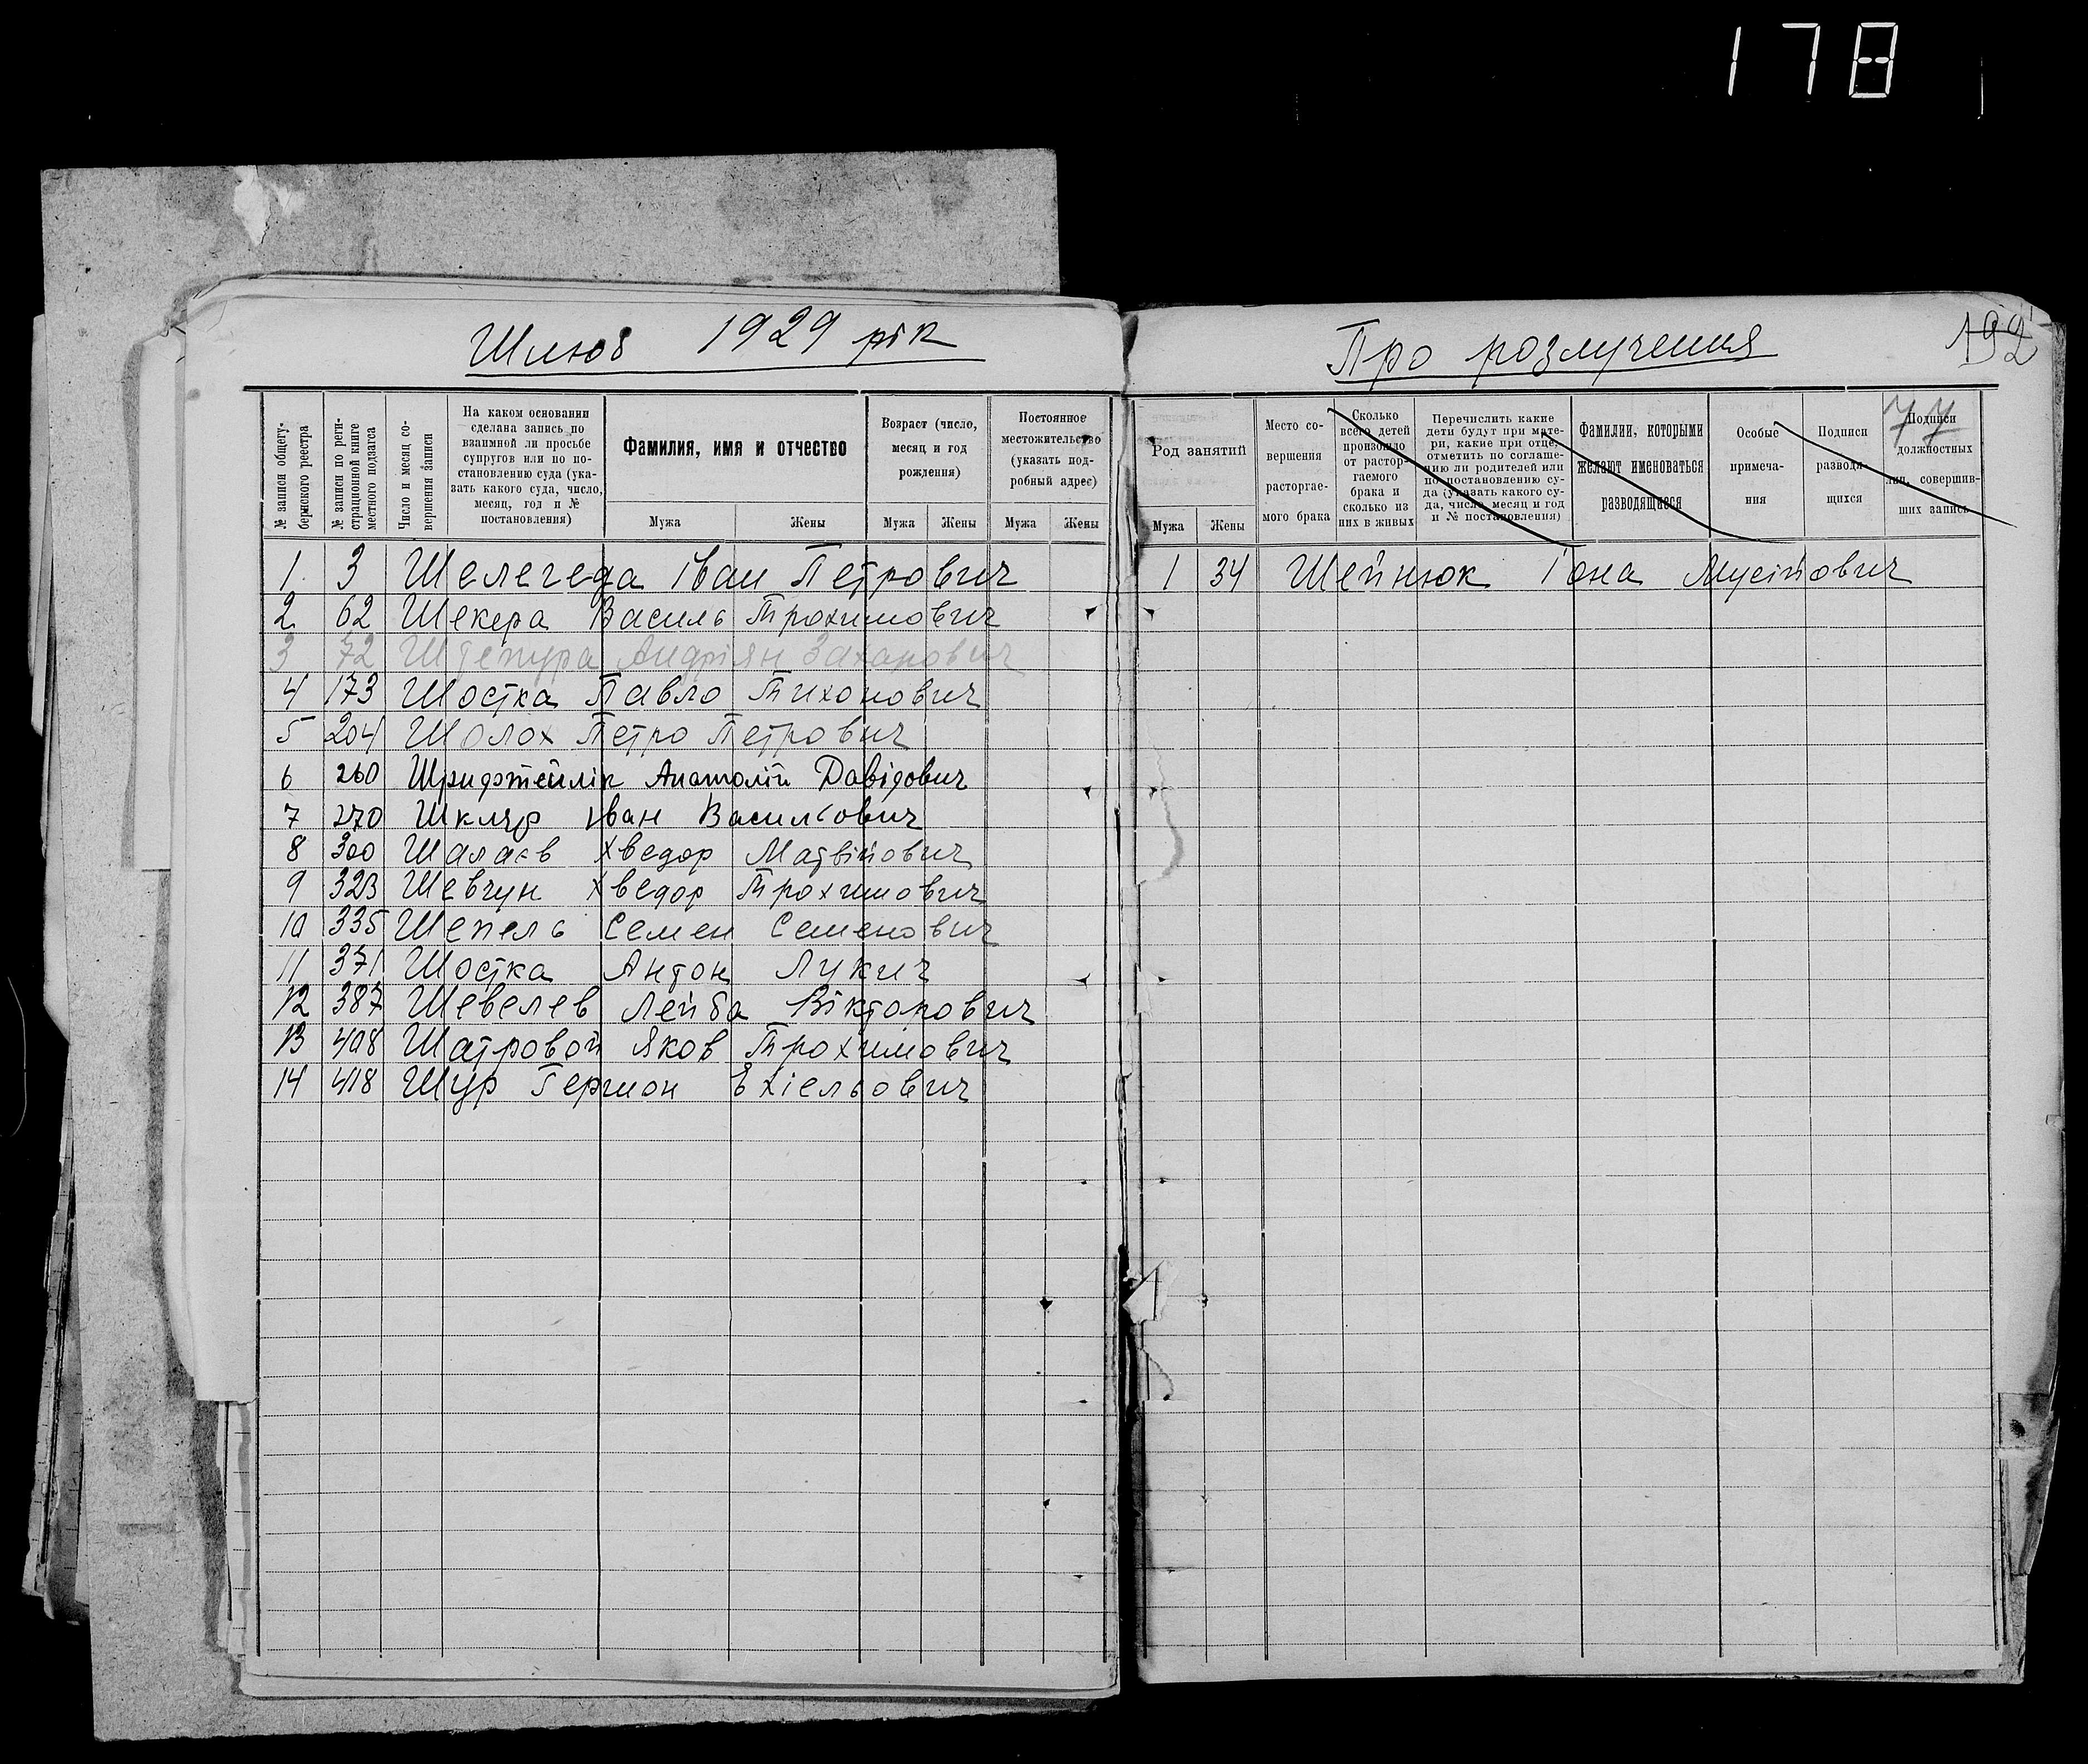 178
Шлюб 1929 рік
№ записи общегу-
бернского реестра
№ записи по реги-
страционной книге
местного подзагса
Число и месяц со-
вершения записи
На каком основании
сделана запись по
взаимной ли просьбе
супругов или по по-
становлению суда (ука-
зать какого суда, число,
месяц, год и №
постановления)
Фамилия, имя и отчество
Мужа Жены
Возраст (число,
месяц и год
рождения)
Мужа Жены
Постоянное
местожительство
(указать под-
робный адрес)
Мужа Жены
1 3 Шелегеда Іван Петрович
2 62 Шекера Василь Трохимович
3 72 Штепура Андріян Захарович
4 173 Шостка Павло Тихонович
5 204 Шолох Петро Петрович
6 260 Шрифтейлік Анатолій Давідович
7 270 Шкляр Іван Васильович
8 300 Шалаєв Хведор Матвійович
9 323 Шевчун Хведор Трохимович
10 335 Шепель Семен Семенович
11 371 Шостка Антон Лукич
12 387 Шевелев Лейба Вікторович
13 408 Шатровой Яков Трохимович
14 418 Шур Гершон Ехіельович
Про розлучення
192
77
Род занятий
Мужа Жены
Место со-
вершения
расторгае-
мого брака
Сколько
всего детей
произошло
от растор-
гаемого
брака и
сколько из
них в живых
Перечислить какие
дети будут при мате-
ри, какие при отце,
отметить по соглаше-
нию ли родителей или
по постановлению су-
да (указать какого су-
да, число, месяц и год
и № постановления)
Фамилии, которыми
желают именоваться
разводящиеся
Особые
примеча-
ния
Подписи
разводя-
щихся
Подписи
должностных
лиц, совершив-
ших запись
1 34 Шейнюк Іона Мусійович